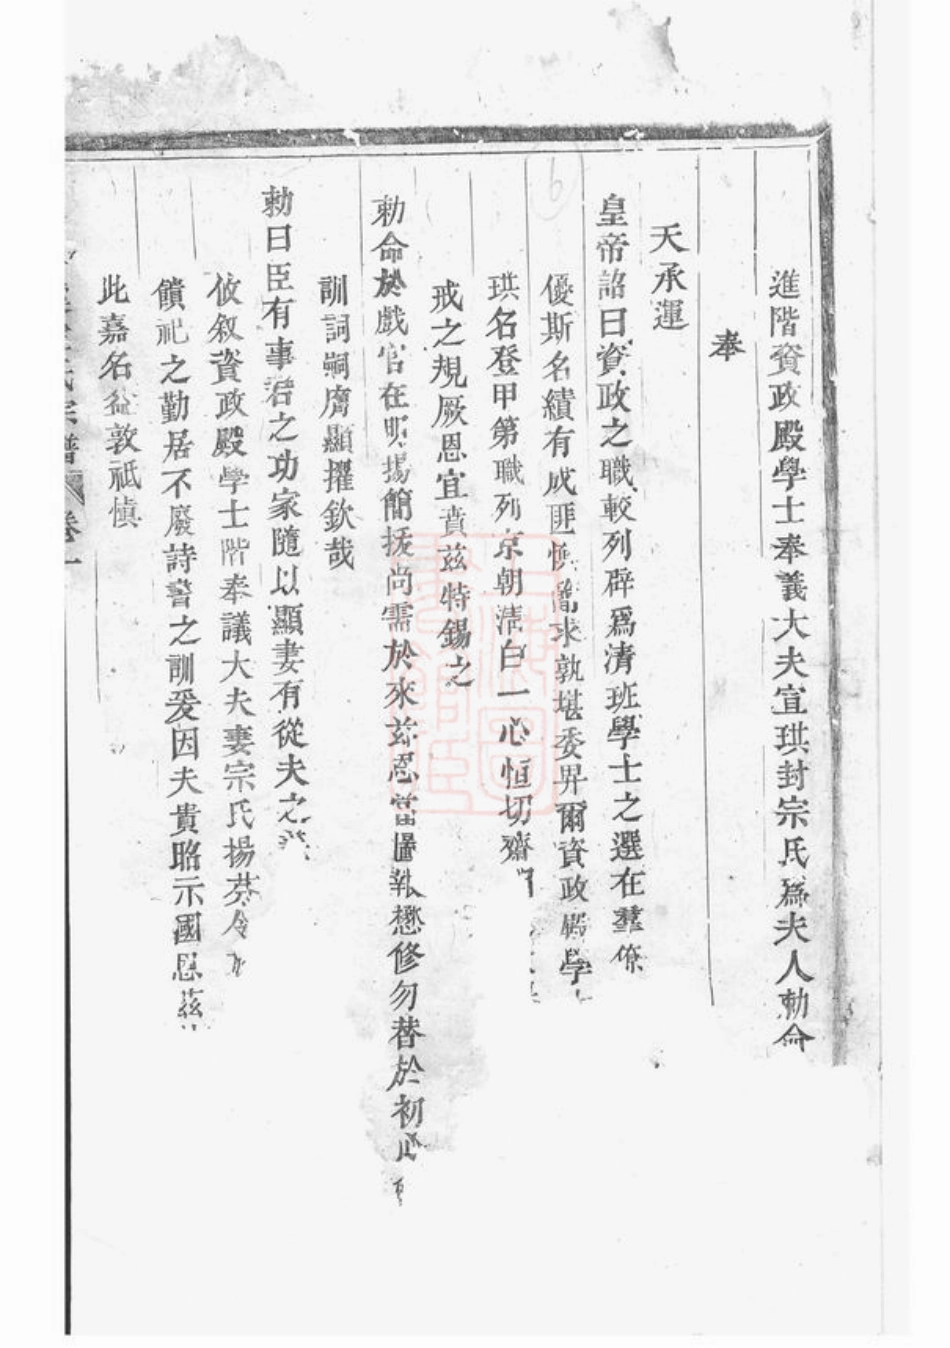 進階資政殿學士奉義大夫宣珙封宗氏爲夫人勅命
奉
天承運
皇帝詔曰資政之職較列辟爲清班學士之選在羣僚
優斯名績有成匪求孰堪委畀爾資政殿學
珙名登甲第職列京朝清白一心恒切齋
戒之規厥恩宜賁茲特錫之
勅命於戲官在明揚簡拔尚需於來茲恩當懋修勿替於初心
訓詞嗣膺顯擢欽哉
勅曰臣有事君之功家隨以顯妻有從夫之
攸敘資政殿學士階奉議大夫妻宗氏揚芬令
饋祀之勤居不廢詩書之訓爰因夫貴昭示國恩茲
此嘉名益敦祗慎
氏宗譜 卷一